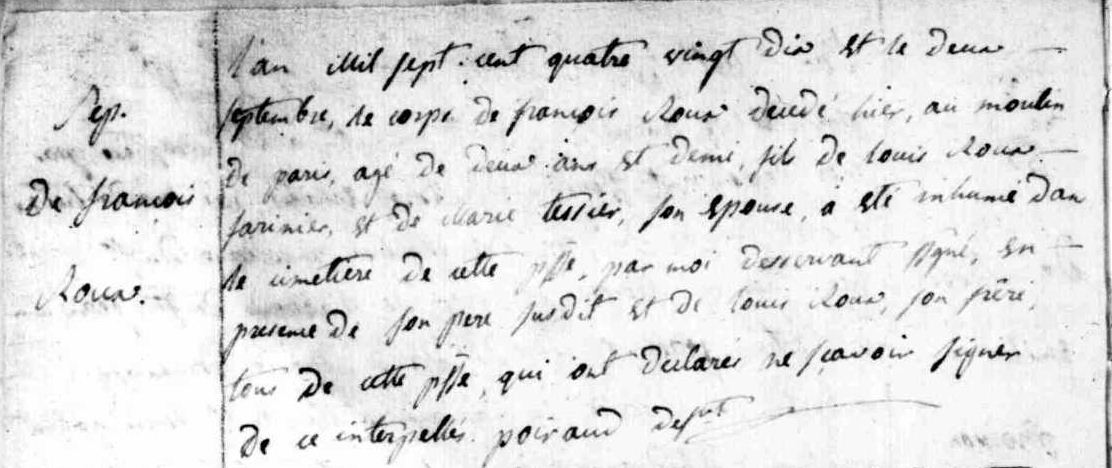 Sep.
de françois
Roux.
l'an Mil sept. cent quatre vingt dix et le deux
septembre, le corps de françois Roux décedé hier, au moulin
de paris, agé de deux ans et demi, fils de louis Roux
farinier, et de Marie tessier, son epouse, a eté inhumé dan
le cimetière de cette psse, par moi desservant sgné, en
presence de son pere susdit et de louis Roux, son frére,
tous de cette psse, qui ont declarés ne sçavoir signer
de ce interpellés. poiraud desvt